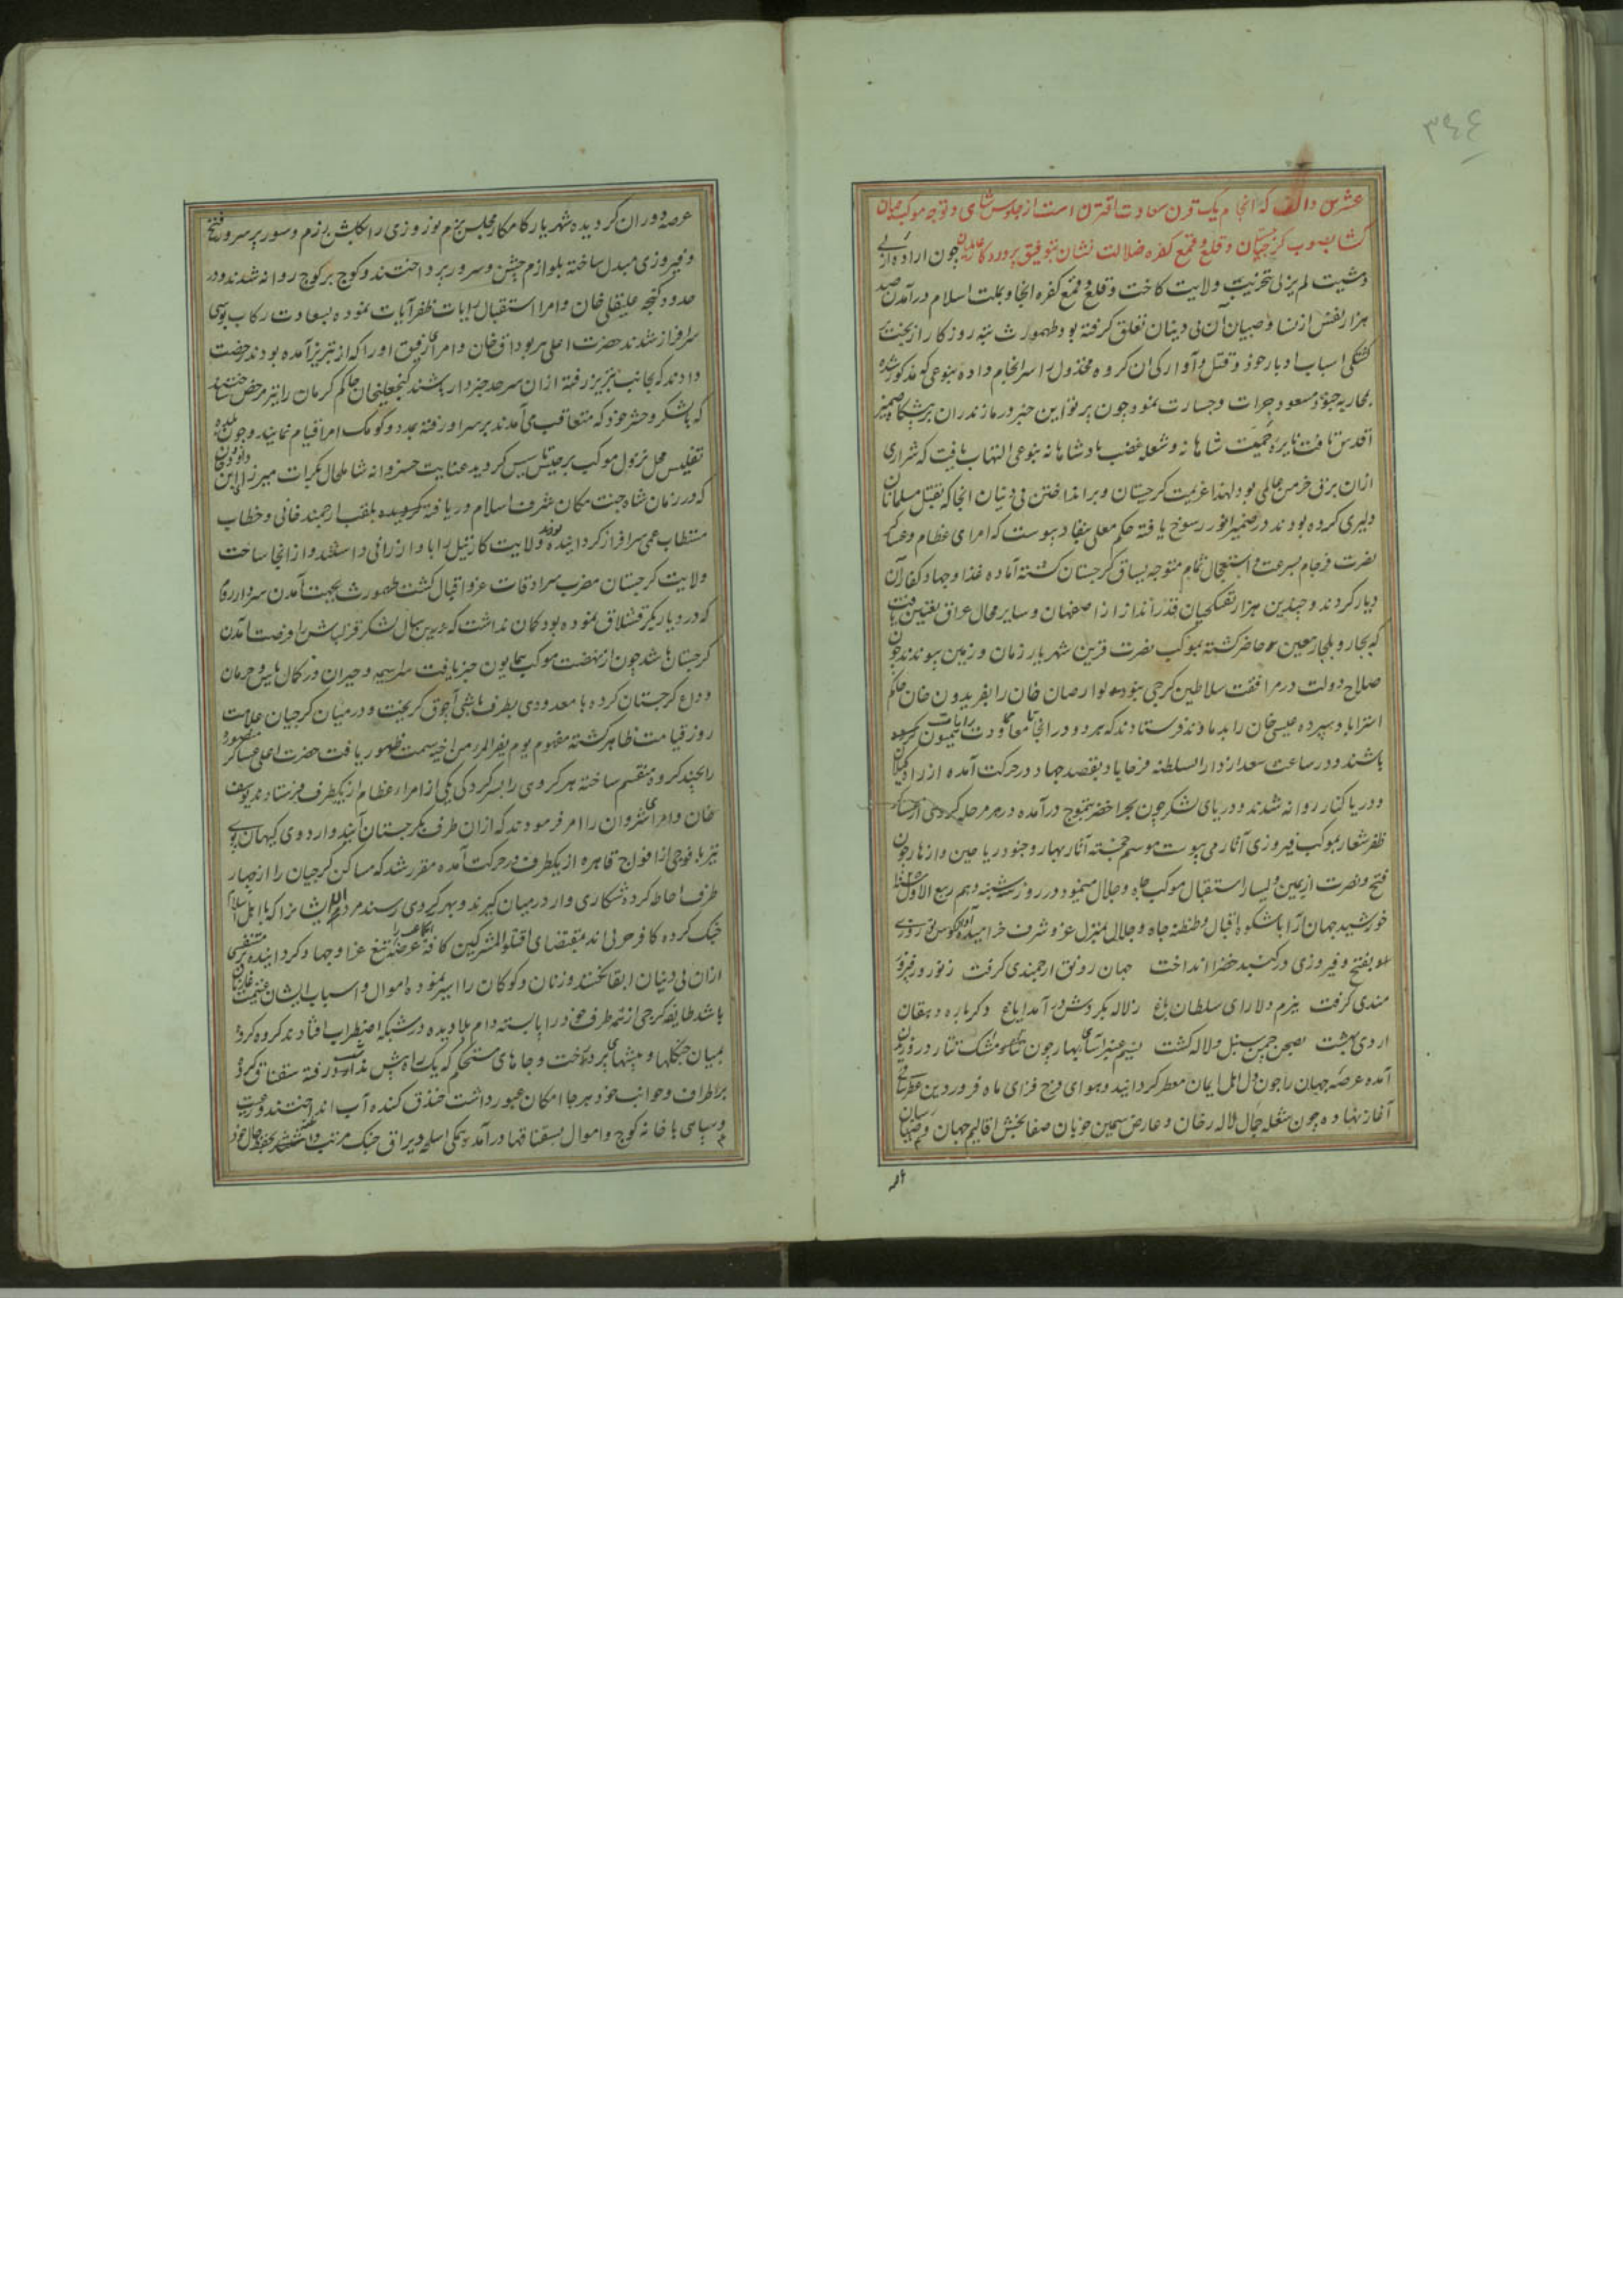 ۳۴۴
عشرین و الف که انجام یک قرن سعادت اقتران است از جلوس شاهی و توجه موکب جهان
کشا بصوب گرجستان و قلع و قمع کفره ضلالت نشان بتوفیق پروردکار عالمیان چون اراده ازلی
و مشیت لم یزلی بتخریب ولایت کاخت و قلع و قمع کفره انجا و بملت اسلام درآمدن صد
هزار نفس از نسا و صبیان آن بی دینان تعلق گرفته بود طهمورث تیره روزکار از بخت
کشتکی اسباب ادبار خود و قتل و آوارکی ان کروه مخذول را سرانجام داده بنوعی که مذکور شد
بمحاربه جنود مسعود جرات و جسارت نمود چون پرتو این خبر در مازندران بر پیشکاه ضمیر
اقدس تافت نایره حمیت شاهانه و شعله غضب پادشاهانه بنوعی التهاب یافت که شراری
ازان برق خرمن عالمی بود لهذا عزیمت کرجستان و برانداختن بی دینان انجا که بقتل مسلمانان
دلیری کرده بودند در ضمیر انور رسوخ یافته حکم معلی بنفاد پیوست که امرای عظام و عساکر
نصرت فرجام بسرعت و استعجال تمام متوجه یساق گرجستان کشته آماده غذا و جهاد کفار آن
دیار کردند و چندین هزار تفنکچیان قدرانداز از اصفهان و سایر محال عراق تعیین یافت
که بجار و بلجار معین حاضر کشته بموکب نصرت قرین شهریار زمان و زمین پیوندند چون
صلاح دولت در مرافقت سلاطین کرجی نبود لوارصاب خان را بفریدون خان حاکم
استراباد سپرده عیسی خان را بدماوند فرستادند که هر دو در انجا تا معاودت رایات همیون
باشند و در ساعت سعد از دار السلطنه فرحاباد بقصد جهاد در حرکت آمده از راه کیلان
و دریا کنار روانه شدند و دریای لشکر چون بحر اخضر بتموج درآمده در هر مرحله کروهی از عساکر
ظفر شعار بموکب فیروزی آثار می پیوست موسم خجسته آثار بهار و جنود ریاحین و ازهار چون
فتح و نصرت از یمین و یسار استقبال موکب جاه و جلال مینمود در روز شنبه دهم ربیع الاول
خورشید جهان آرا با شکوه اقبال و طنطنه جاه و جلال بمنزل عز و شرف خرامید آوازه کوس نوروزی
بفتح و فیروزی در کنبد خضرا انداخت جهان رونق ارجمندی کرفت ز نوروز فیروز
مندی کرفت ببزم دلارای سلطان باغ ز لاله بکردش درآمد ایاغ دکرباره دهقان
اردی بهشت بصحن چمن سنبل و لاله کشت نسیم عنبر آسای بهار چون نافه مشک تتار در وزیدن
آمده عرصه جهان را چون دل اهل ایمان معطر کردانید و هوای فرح فزای ماه فروردین عطرسایی
آغاز نهاده چون شعله جمال لاله رخان و عارض سیمین خوبان صفابخش اقالیم جهان و
عرصه دوران کردیده شهریار کامکار مجلس بزم نوروزی را بکاش رزم و سور بر سرور فتح
و فیروزی مبدل ساخته بلوازم جشن و سرور پرداختند و کوچ بر کوچ روانه شدند و در
حدود کنجه علیقلی خان و امرا استقبال رایات ظفر آیات نموده بسعادت رکاب بوسی
سرافراز شدند حضرت اعلی پیر بوداق خان و امرای رفیق او را که از تبریز آمده بودند رخصت
دادند که بجانب تبریز رفته ازان سرحد خبردار باشند کنجعلیخان حاکم کرمان را نیز مرخص ساختند
که با لشکر و حشر خود که متعاقب می آمدند بر سر او رفته بمدد و کومک امرا قیام نمایند و چون بلده
تفلیس محل نزول موکب برجیس کردید عنایت خسروانه شامل حال بکرات میرزا ابن
که در زمان شاه جنت مکان شرف اسلام دریافته بلقب ارجمند خانی و خطاب
مستطاب عمی سرافراز کردانیده ولایت کارتیل را باو ارزانی داشتند و از انجا ساحت
ولایت کرجستان مضرب سرادقات عز و اقبال کشت طهمورث بجهت آمدن سردار روم
که در دیاربکر قشلاق نموده بود کمان نداشت که درین سال لشکر قزلباش را فرصت آمدن
کرجستان باشد چون از نهضت موکب همایون خبر یافت سراسیمه و حیران و در کمال یاس و حرمان
وداع کرجستان کرده با معدودی بطرف باشی آچوق کریخت و در میان کرجیان علامت
روز قیامت ظاهر کشته مفهوم یوم یفر المرء من اخیه سمت ظهور یافت حضرت اعلی عساکر منصوره
را بچند کروه منقسم ساخته هر کروهی را بسرکردکی یکی از امراء عظام از یکطرف فرستادند یوسف
خان و امرای شروان را امر فرمودند که ازان طرف بکرجستان آیند و اردوی کیهان پوی
نیز با فوجی از افواج قاهره از یکطرف در حرکت آمده مقرر شد که مساکن کرجیان را از چهار
طرف احاطه کرده شکاری وار در میان کیرند و بهر کروهی رسند مردم را که با اهل اسلام
جنک کرده کافر حربی اند بمقتضای اقتلوا المشرکین کافة عرضه تیغ غزا و جهاد کردانیده متنفسی
ازان بی دینان ابقا نکنند و زنان و کودکان را اسیر نموده اموال و اسباب ایشان غنیمت غازیان
باشد طایفه کرجی از همه طرف خود را پابسته دام بلا دیده در شبکه اضطراب افتادند کروه کروه
بمیان جنکلها و بیشهای پر درخت و جاهای مستحکم که یک راه بیش نداشت رفته سقناق کرده
بر اطراف و جوانب خود هر جا امکان عبور داشت خندق کنده آب انداختند و رعیت
و سپاهی با خانه کوچ و اموال بسقناقها درآمده همکی اسلحه و یراق جنک مرتب داشته بحفظ حال خود